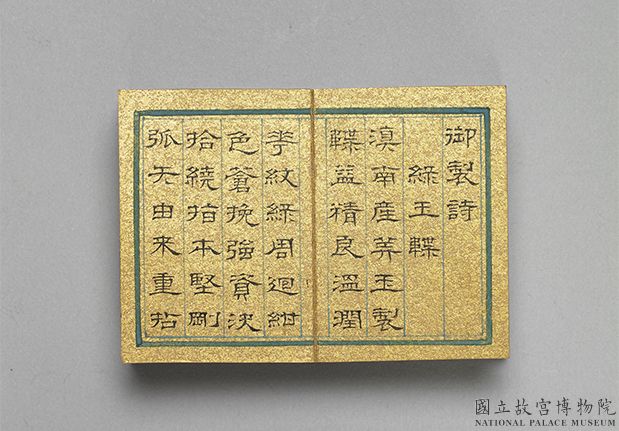 御製詩
緑玉韘
滇南産美玉製
韘益精良溫潤
華紋緑周迴紺
色蒼挽強資決
拾繞指本堅剛
弧矢由来重拈
國立故宮博物院
NATIONAL PALACE MUSEUM